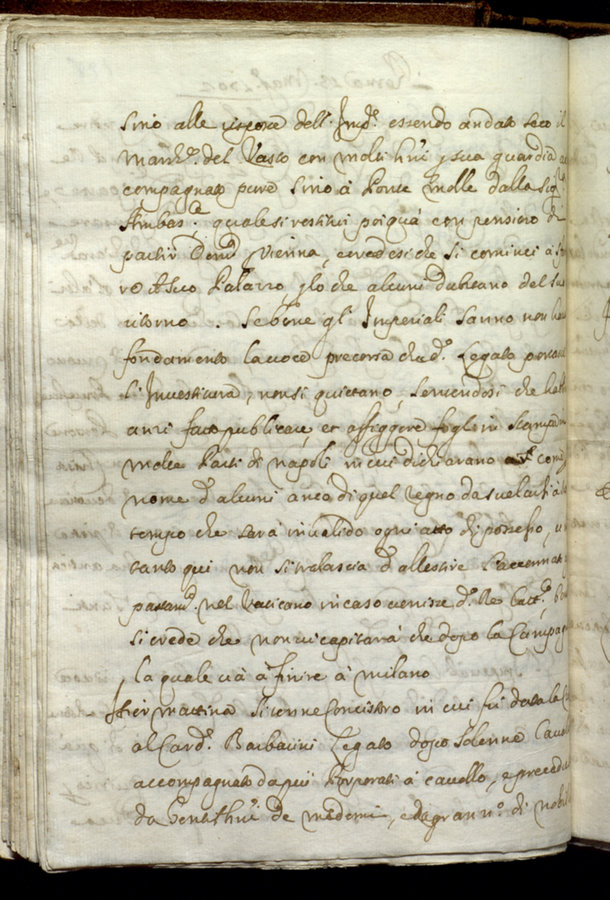 sino alle vespore dell'Imp.e essendo andato seco il
March.e del Vasto con molti thri, e sua guardia
compagnato pure sino à Ponte Molle dalla Sig.
Ambas.a quale si restituì poi quà con pensiero di
partir Dom.a p Vienna, credesi che si cominci à
re il suo Palazzo, p lo che alcuni dubitano del suo
ritorno. Se bene gl'Imperiali sanno non
fondamento la voce precorsa che d.o Legato
l'Investitura, non si quietano, sentendosi che
anzi fatto publicare, et affiggere fogli in Stampa
molte Parti di Napoli in cui dichiarano
nome d'alcuni anco di quel Regno da suelarsi à
tempo che sarà invalido ogni atto di possesso,
tanto qui non si tralascia d'allestire l'accennato
partam.o nel Vaticano in caso venisse d.o Re Catt.o,
si crede che non vi capitarà che dopo la Campag
la quale và à finire à Milano
Hier mattina si tenne Concistoro in cui fù data la
al Card. Barbarini Legato dopo solenne
accompagnato da più Porporati à cavallo, e
da de medemi, e da gran n.o di nobil